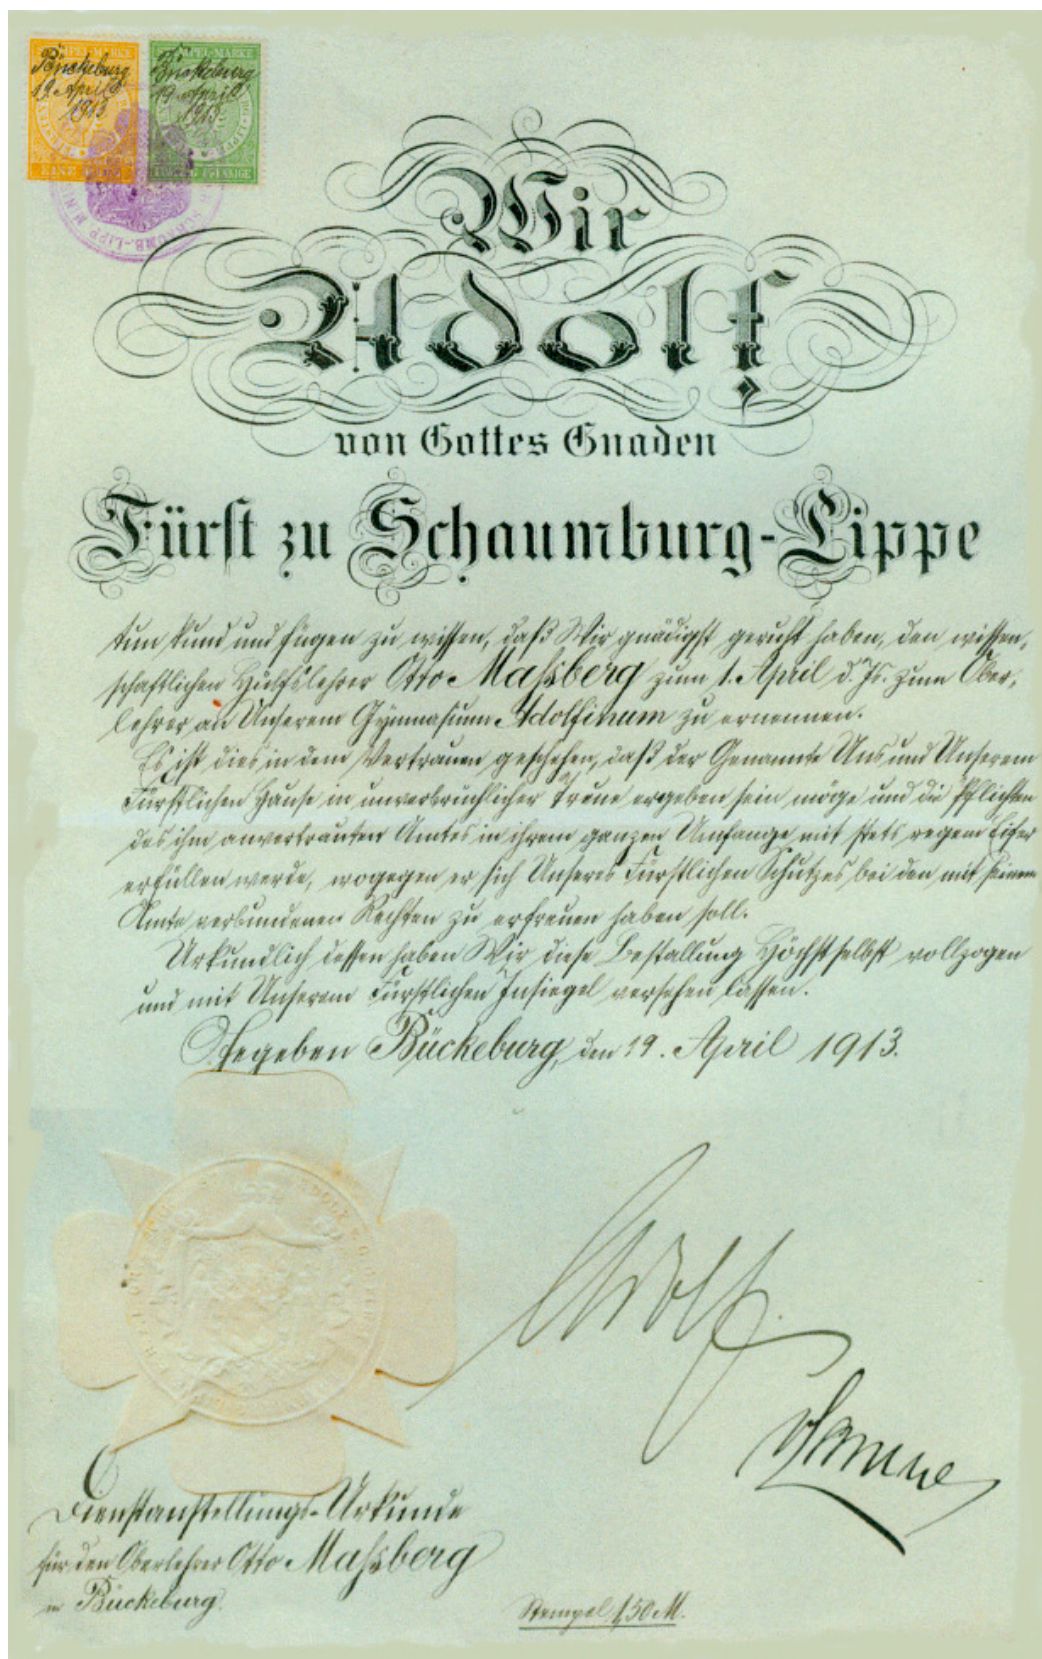 STEMPEL-MARKE
Bückeburg
19. April
1913
EINE MARK
STEMPEL-MARKE
Bückeburg
19 April
1913
PFENNIGE
SCHAUMB-LIPP MINI
Wir
Adolf
von Gottes Gnaden
Fürst zu Schaumburg-Lippe
tun kund und fügen zu wissen, daß Wir gnädigst geruht haben, den wissen-
schaftlichen Hülfslehrer Otto Maßberg zum 1. April d. Js. zum Ober-
lehrer an Unserem Gymnasium Adolfinum zu ernennen.
Es ist dies in dem Vertrauen geschehen, daß der Genannte Uns und Unserem
Fürstlichen Hause in unverbrüchlicher Treue ergeben sein möge und die Pflichten
des ihm anvertrauten Amtes in ihrem ganzen Umfange mit stets regem Eifer
erfüllen werde, wogegen er sich Unseres Fürstlichen Schutzes bei den mit seinem
Amte verbundenen Rechten zu erfreuen haben soll.
Urkundlich dessen haben Wir diese Bestallung Höchstselbst vollzogen
und mit Unserem Fürstlichen Insiegel versehen lassen.
Gegeben Bückeburg, den 19. April 1913.
Adolf.
Dienstanstellungs-Urkunde
für den Oberlehrer Otto Maßberg
in Bückeburg.
Stempel 1,50 M.